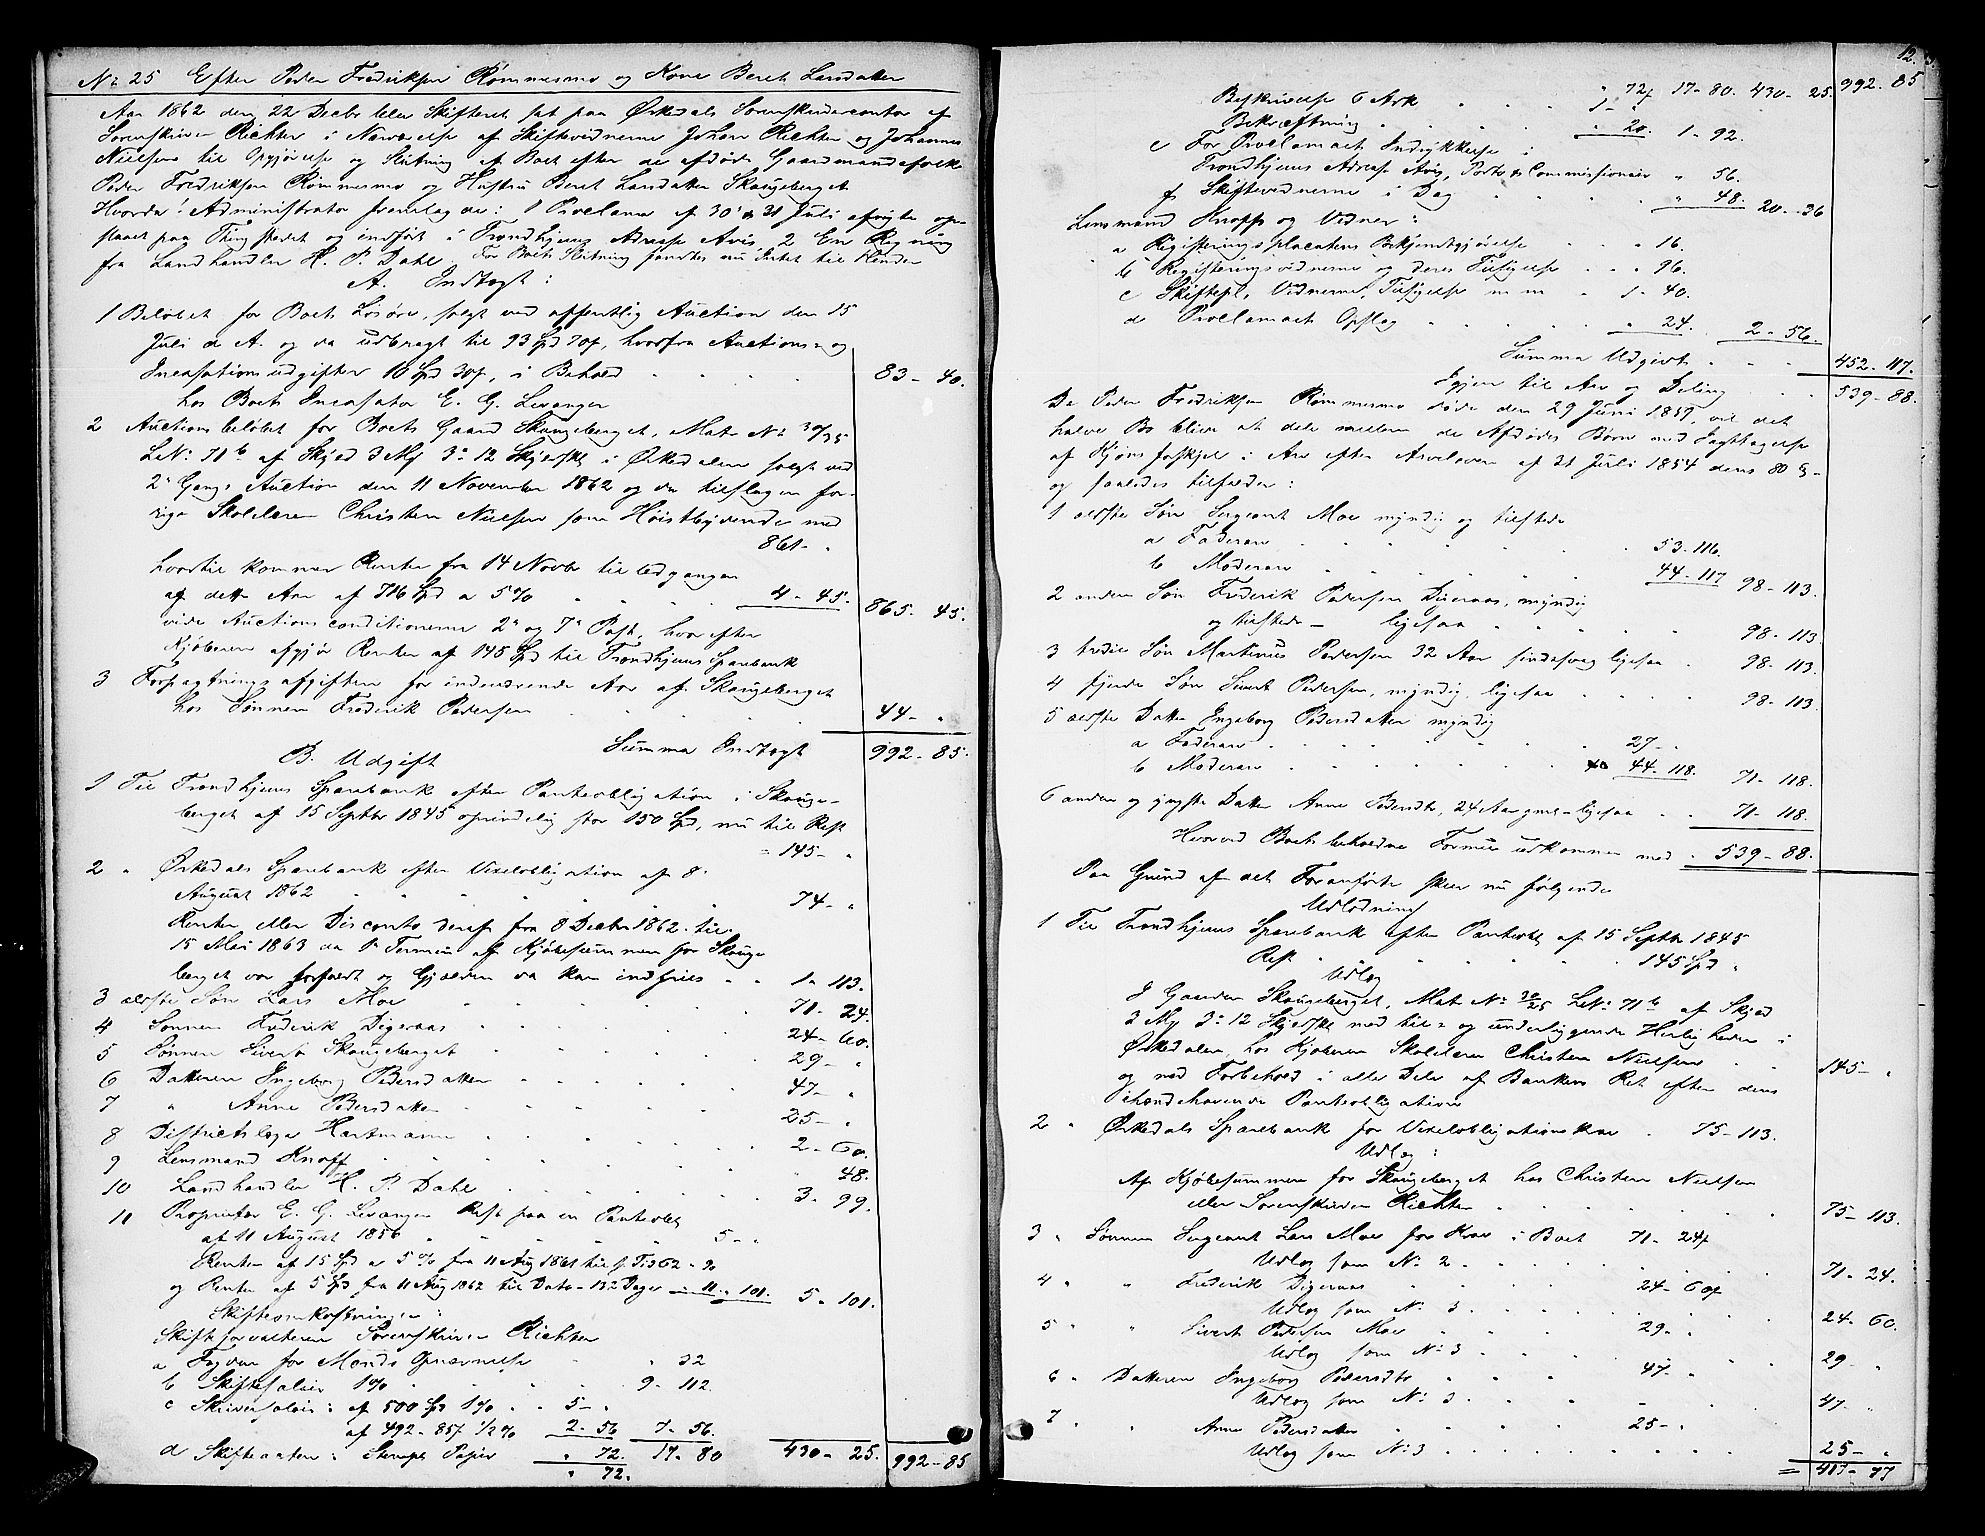 No 25 Efter Peder Fredriksen Rømmesmo og Kone Beret Larsdatter
Aar 1862 den 22 Decbr blev Skifteret sat paa Ørkedals Sorenskrivercontor af
Sorenskriver Richter i Nærværelse af Skiftevidnerne Johan Richter og Johannes
Nielsen til Opgjørelse og Slutning af Boet efter de afdøde Gaardmandsfolk
Peder Fredriksen Rømmesmo og Hustru Beret Larsdatter Skougeberget
Hvorda! Administrator fremlagde: 1 Proclama af 30 & 31 Juli afvigte op=
slaaet paa Thingstedet og indført i Trondhjems Adresse Avis, 2 En Regning
fra Landhandler H. P. Dahl. For Boets Slutning fandtes nu Intet til Hinder
A. Indtægt:
1 Beløbet for Boets Løsøre, solgt ved offentlig Auction den 15
Juli d. A. og da udbragt til 93 Spd 70 s, hvorfra Auctions= og
Incasationsudgifter 10 Spd 30 s, i Behold 83 - 40.
hos Boets Incasator E. G. Levanger
2 Auctionsbeløbet for Boets Gaard Skougeberget, Matr No 30/35
LNo 71b af Skyld 3 My 3 o 12 Skj i Ørkedalen solgt ved
2n Gangs Auction den 11 November 1862 og da tilslagen for=
rige Skolelærer Christen Nielsen som Høistbydende med
861 - "
hvortil kommer Renter fra 14 Novbr til Udgangen
af dette Aar af 716 Spd a 5 % 4 - 45. 865. 45.
vide Auctionsconditionerne 2n og 7n Post, hvorefter
Kjøberen afgjør Renter af 145 Spd til Trondhjems Sparebank
3 Forpagtningsafgiften for indeværende Aar af Skougeberget
hos Sønnen Frederik Pedersen 44 - "
Summa Indtægt 992 - 85.
B. Udgift
1 Til Trondhjems Sparebank efter Panteobligation i Skouge=
berget af 15 Septbr 1845 oprindelig stor 150 Spd, nu til Rest
= 145 - "
2 " Ørkedals Sparebank efter Vexelobligation af 8
August 1862 74 - "
Renter eller Disconto deraf fra 8 Decbr 1862 til
15 Mai 1863 da 1ste Termin af Kjøbesummen for Skouge
berget var forfaldt og Gjælden da kan indfries 1 - 113.
3 ældste Søn Lars Moe 71 - 24.
4 Sønnen Frederik Digeraas 24 - 60.
5 Sønnen Sivert Skougeberget 29 - "
6 Datteren Ingeborg Pedersdatter 47 - "
7 " Anne Pedersdatter 25 - "
8 Districtslæge Hartmann 2 - 60.
9 Lensmand Knoff " 48.
10 Landhandler H. P. Dahl 3. 99.
11 Proprietær E. G. Levanger Rest paa en Panteobl
af 11 August 1856 5 - "
Renter af 15 Spd a 5 % fra 11 Aug 1861 til f. T. 1862 - 90
og Renter af 5 Spd fra 11 Aug 1862 til Dato - 132 Dager 11 " 101. 5 - 101.
Skifteomkostninger:
Skifteforvalteren Sorenskriver Richter
a Fogden for Mænds Opnævnelse " 32
b Skiftesalair 1 % 9 - 112.
c Skriversalair: af 500 Spd 1 % 5 - "
af 492 - 85 s 1/2 % 2 - 56 7 - 56.
d Skifteacten: Stemplet Papir " 72. 17 - 80 430 - 25. 992 - 85
" 72.
12.
" 72 s 17 - 80. 430 - 25. 992 - 85
Beskrivelse 6 Ark 1 - "
Bekræftning " 20. 1 - 92.
e For Proclamaets Indrykkelse i
Trondhjems Adresse Avis, Porto & Commissionair " 56.
f Skiftevidnerne i Dag " 48. 20 - 36
Lensmand Knoff og Vidner:
a Registreringsplacatens Bekjendtgjørelse " 16.
b Registreringsvidnerne og deres Tilsigelse " 96.
c Skiftepl, Vidnerne, Tilsigelse m m 1 - 40.
d Proclamaets Opslag " 24. 2 - 56.
Summa Udgivt 452 - 117.
Igjen til Arv og Deling 539 - 88.
Da Peder Fredriksen Rømmesmo døde den 29 Juni 1859, vil det
halve Bo blive at dele mellem de Afdødes Børn med Iagttagelse
af Kjøns forskjel i Arv efter Arveloven af 31 Juli 1854 dens 80 §=
og saaledes tilfalder:
1 ældste Søn Sergeant Moe myndig og tilstede
a Faderarv 53. 116.
b Moderarv 44 - 117 98 - 113.
2 anden Søn Frederik Pedersen Digeraas, myndig
og tilstede - ligesaa 98 - 113
3 tredie Søn Martinus Pedersen 32 Aar sindssvag ligesaa 98 - 113.
4 fjerde Søn Sivert Pedersen, myndig, ligesaa 98 - 113.
5 ældste Datter Ingeborg Pedersdatter myndig
a Faderarv 27 - "
b Moderarv 44 - 118. 71 - 118.
6 anden og yngste Datter Anne Pedersdtr, 24 Aar gml - ligesaa 71 - 118.
Hvorved Boets beholdne Formue udkommer med 539 - 88.
Paa Grund af det Foranførte skeer nu følgende
Udlodning
1 Til Trondhjems Sparebank efter Panteobl af 15 Septbr 1845
Rest 145 Spd "
Udlæg
I Gaarden Skougeberget, Matr No 30/35 LNo 71b af Skyld
3 My 3 o 12 Skj med til= og underliggende Herligheder i
Ørkedalen, hos Kjøberen Skolelærer Christen Nielsen
og med Forbehold i alle Dele af Bankens Ret efter dens 145 - "
ihændehavende Panteobligation
2 " Ørkedals Sparebank for Vexelobligationskrav 75 - 113.
Udlæg:
Af Kjøbesummen for Skougeberget hos Christen Nielsen
eller Sorenskriver Richter 75 - 113.
3 " Sønnen Sergeant Lars Moe for Krav i Boet 71 - 24 s
Udlæg som No 2 71 - 24.
4 " " Frederik Digeraas 24 - 60 s
Udlæg som No 3 24 - 60.
5 " " Sivert Pedersen Moe 29 - "
Udlæg som No 3 29 - "
6 " Datteren Ingeborg Pedersdtr 47 - "
Udlæg som No 3 47 - "
7 " " Anne Pedersdatter 25 - "
Udlæg som No 3 25 - "
= 417 - 77